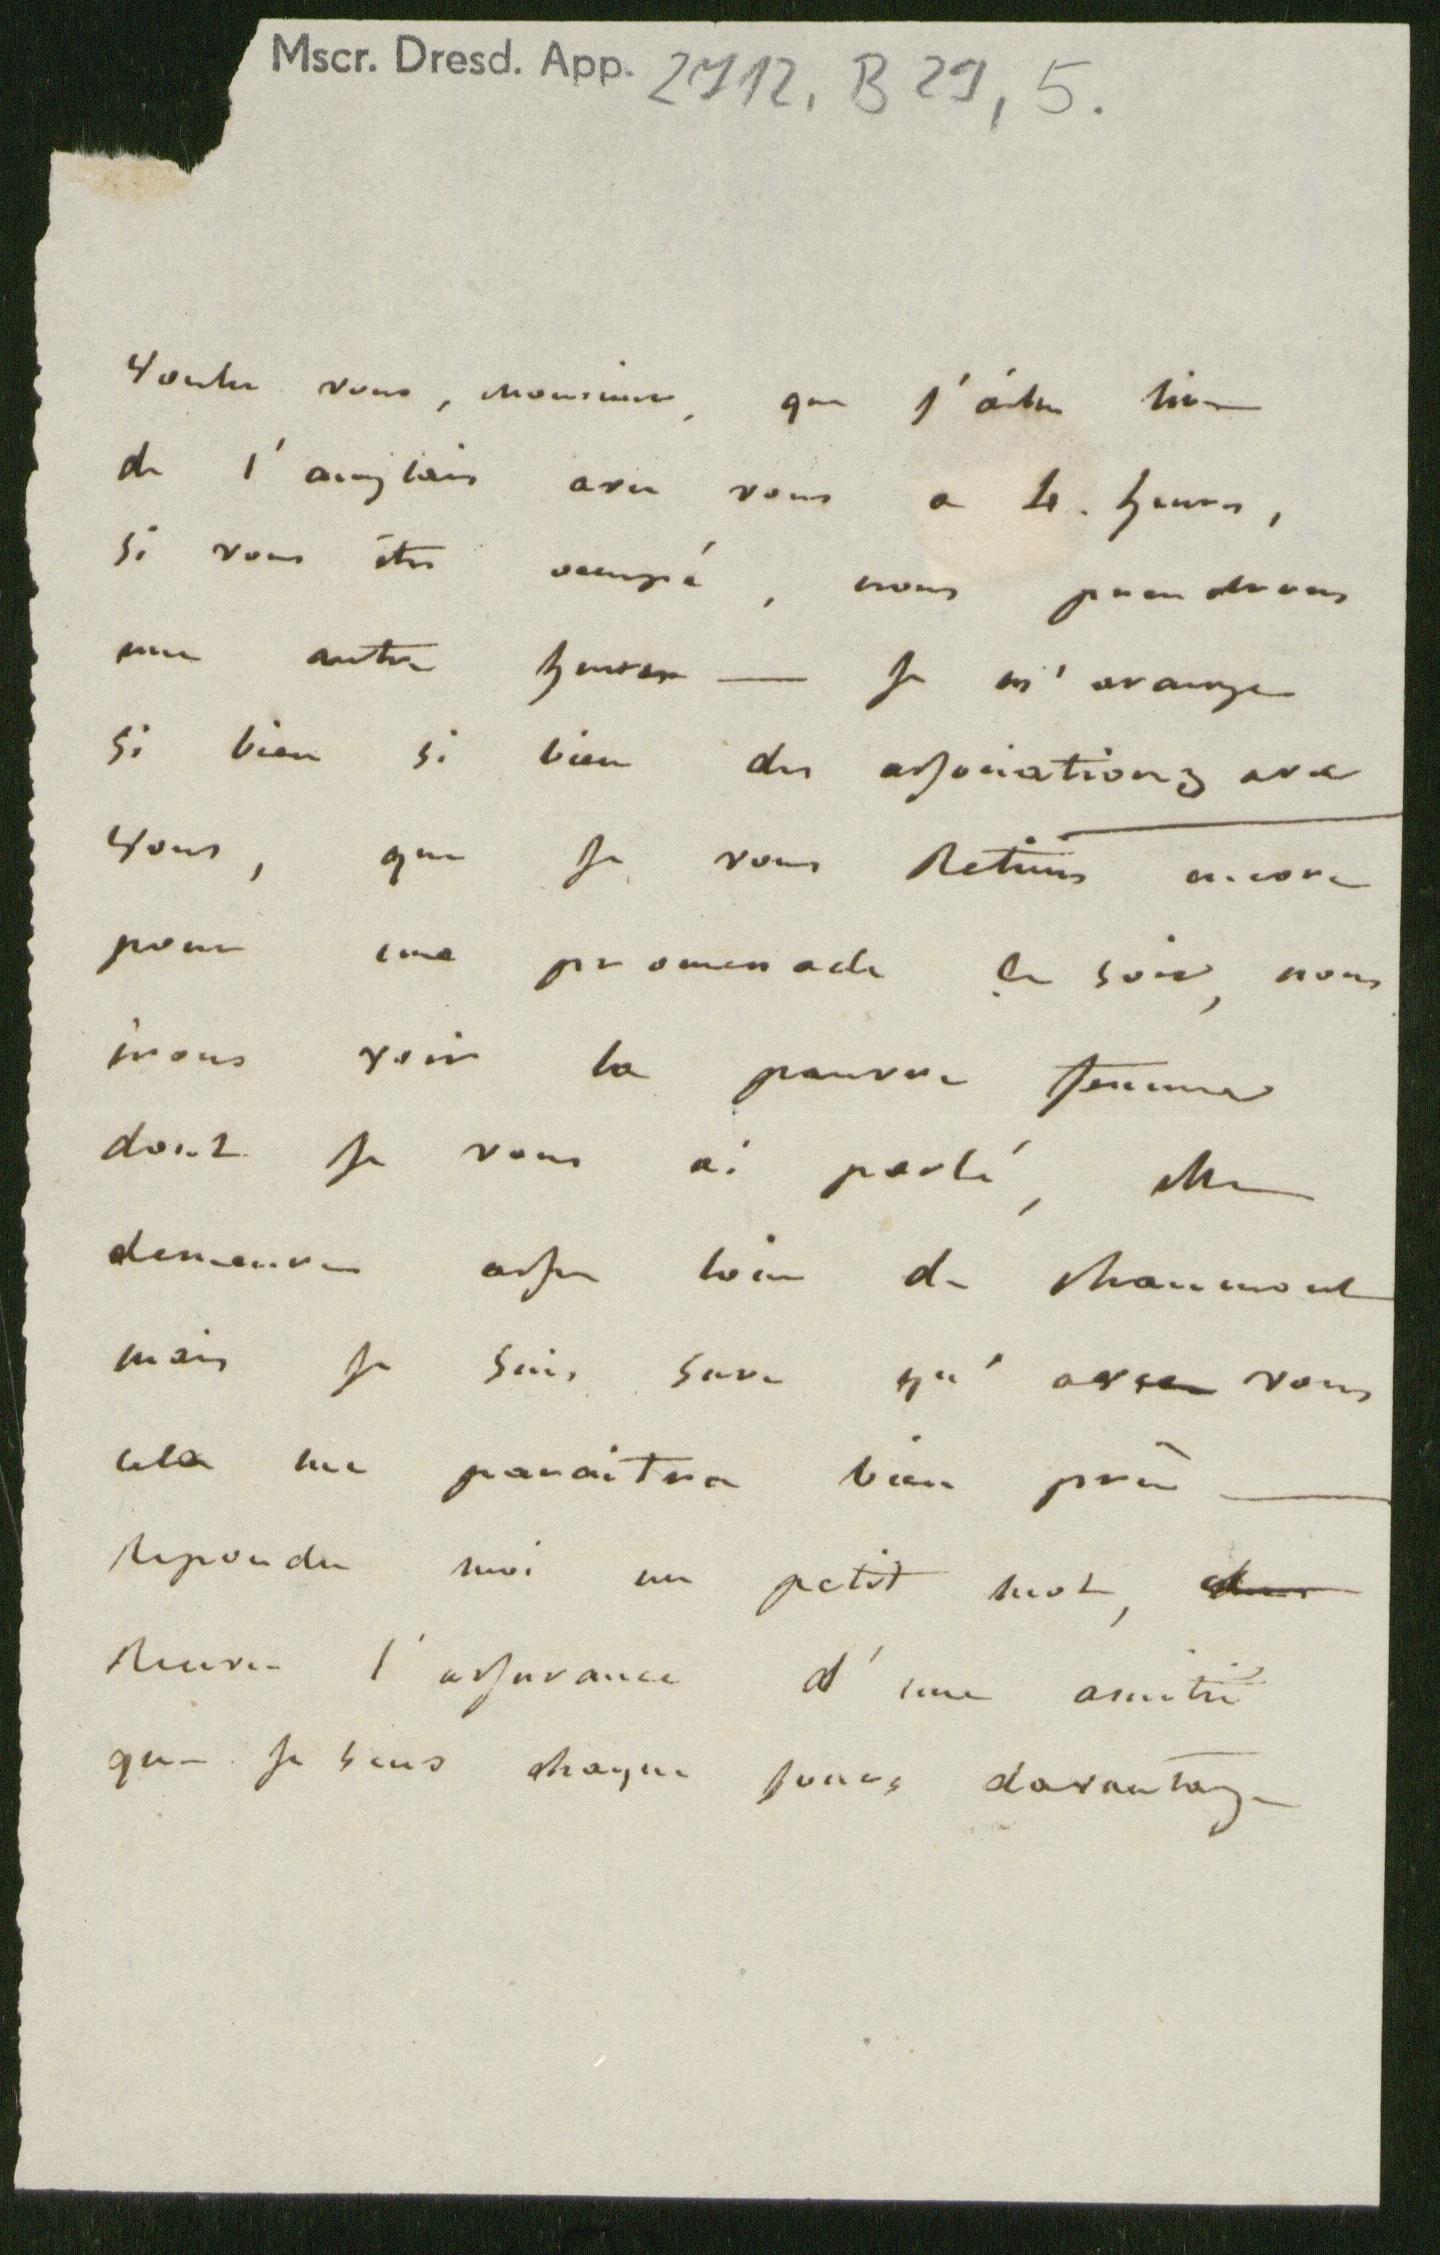 Mscr. Dresd. App. 2712, B 29, 5.
Voulez vous, monsieur, que j'aille lire
de l'anglais avec vous a 4. heures,
si vous êtes occupé, nous prendrons
une autre heure — je m'arange
si bien si bien des associations avec
vous, que je vous retiens encore
pour une promenade ce soir, nous
irons voir la pauvre femme
dont je vous ai parlé, elle
demeure assez loin de chaumont
mais je suis sure qu'avec vous
cela me paraitra bien près —
repondez moi un petit mot,
recevez l'assurance d'une amitié
que je sens chaque jours davantage